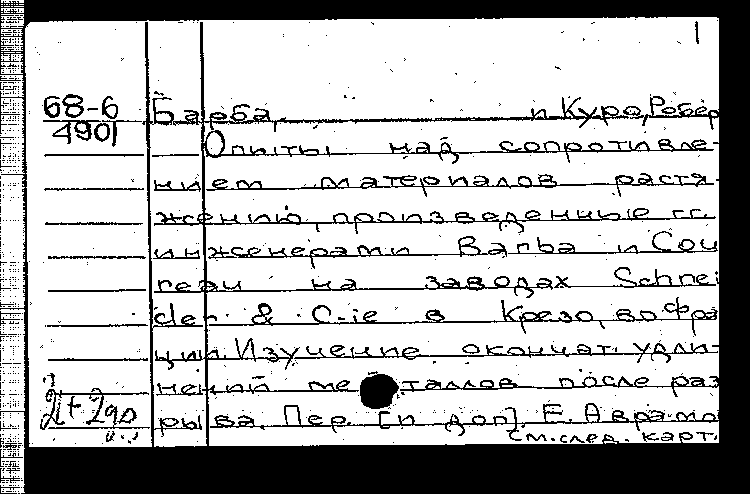 1
68-6
4901
Барба, и Куро, Робер
Опыты над сопротивле-
нием материалов растя-
жению, произведенные гг.
инженерами Barba и Cou
reau на заводах Schnei
der & C-ie в Крезо, во Фра
ции. Изучение окончат. удли-
нений металлов после раз
рыва. Пер. [и доп]. Е. Аврамо
см. след. карт.